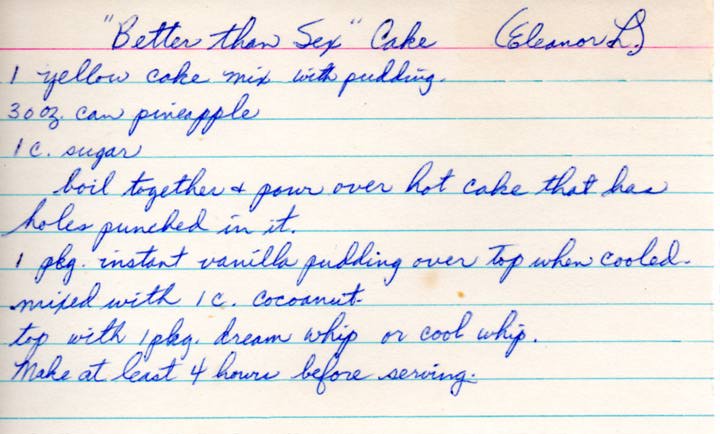 "Better than Sex" Cake (Eleanor L.)
1 yellow cake mix with pudding.
30 oz. can pineapple
1 c. sugar
boil together & pour over hot cake that has
holes punched in it.
1 pkg. instant vanilla pudding over top when cooled.
mixed with 1 c. cocoanut.
top with 1 pkg. dream whip or cool whip.
Make at least 4 hours before serving.